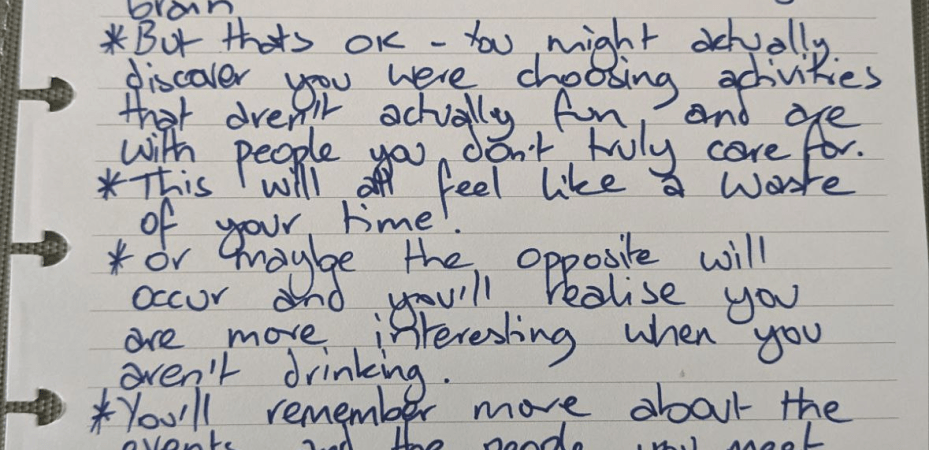 brain
*But thats OK - You might actually
discover you were choosing activities
that aren't actually fun, and are
with people you don't truly care for.
*This will all feel like a waste
of your time!
* Or maybe the opposite will
occur and you'll realise you
are more interesting when you
aren't drinking.
*You'll remember more about the
events and the people you meet